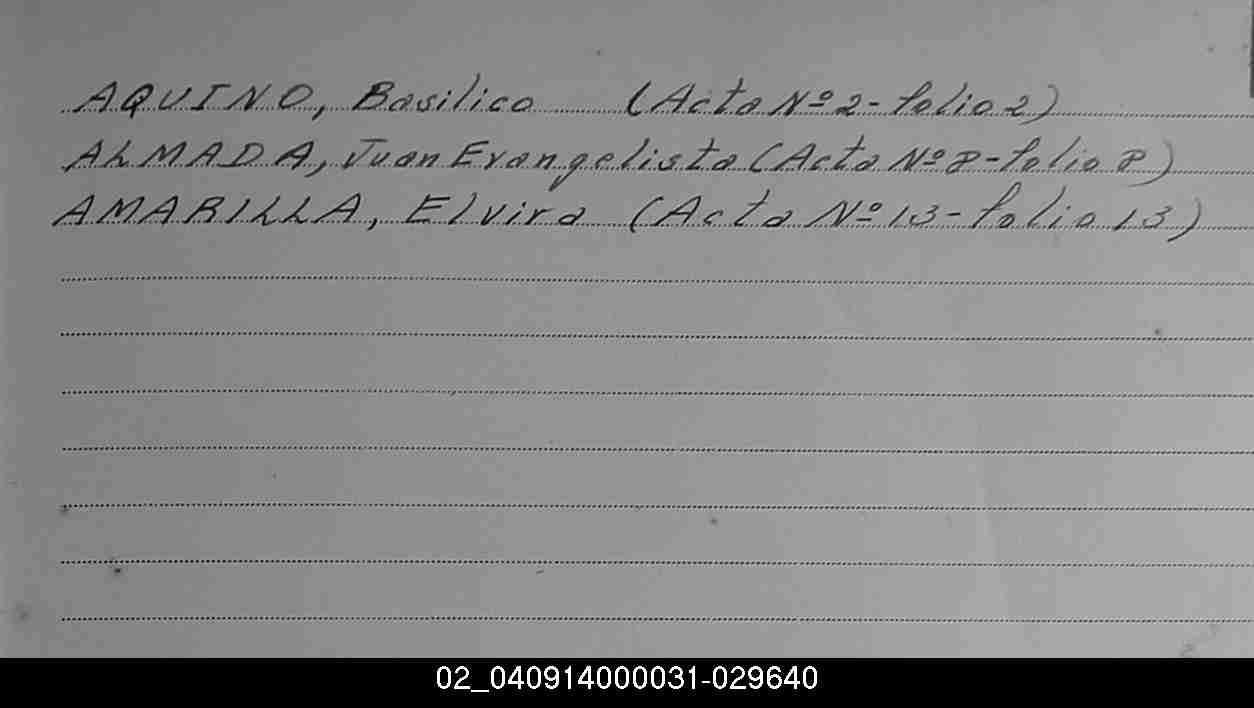 AQUINO, Basilica (Acta Nº 2 - folio 2)
ALMADA, Juan Evangelista (Acta Nº 8 - folio 8)
AMARILLA, Elvira (Acta Nº 13 - folio 13)
02_040914000031-029640